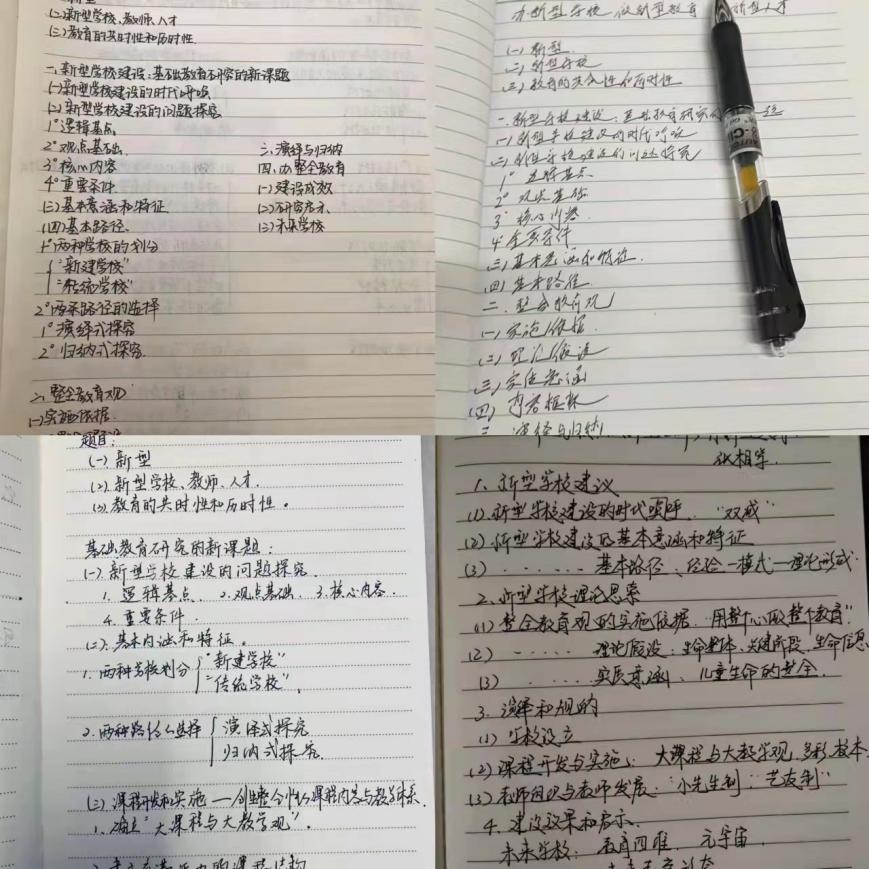 (二)新型学校、教师、人才
(三)教育的共时性和历时性
一、新型学校建设:基础教育研究的新课题
(一)新型学校建设的时代呼唤
(二)新型学校建设的问题探究
1°逻辑基点
2°观点基础
3°核心内容
4°重要条件
(三)基本意涵和特征
(四)基本路径
1°两种学校的划分
"新建学校"
"传统学校"
2°两条路径的选择
1°演绎式探究
2°归纳式探究
二、整全教育观
(一)实施依据
三、演绎与归纳
四、办整全教育
(一)建设成效
(二)研究启示
(三)未来学校
办新型学校 做新型教育
(一)新型
(二)新型学校
(三)教育的共时性和历时性
一、新型学校建设:基础教育研究的
(一)新型学校建设的时代呼唤
(二)新型学校建设的问题探究
1°逻辑基点
2°观点基础
3°核心内容
4°重要条件
(三)基本意涵和特征
(四)基本路径
二、整全教育观
(一)实施依据
(二)理论假设
(三)实质意涵
(四)内容框架
三、演绎与归纳
题目:
(一)新型
(二)新型学校、教师、人才.
(三)教育的共时性和历时性。
基础教育研究的新课题:
(一)新型学校建设的问题探究.
1.逻辑基点、2.观点基础、3.核心内容.
4.重要条件.
(二)、基本内涵和特征。
1.两种学校划分
"新建学校"
"传统学校".
2.两种路径选择
演绎式探究
归纳式探究.
(三)课程开发和实施—创整合性课程内容与教学体系.
1.确立"大课程与大教学观".
张相学.
1、新型学校建议
(1).新型学校建设的时代唤呼、"双减"
(2)新型学校建设的基本意涵和特征
(3).......基本路径、经验—模式—理论形成
2、新型学校理论思索
(1)整全教育观的实施依据.用整个心做整个教育"
(2)......理论假设.生命整体、关键阶段、生命信息
(3)......实质意涵、儿童生命的整全.
3.演绎和规的
(1)学校设立
(2)课程开发与实施:大课程与大教学观、多彩校本
(3)教师团队与教师发展:"小先生制""艺友制"
4.建设效果和启示.
未来学校:教育四维、元宇宙